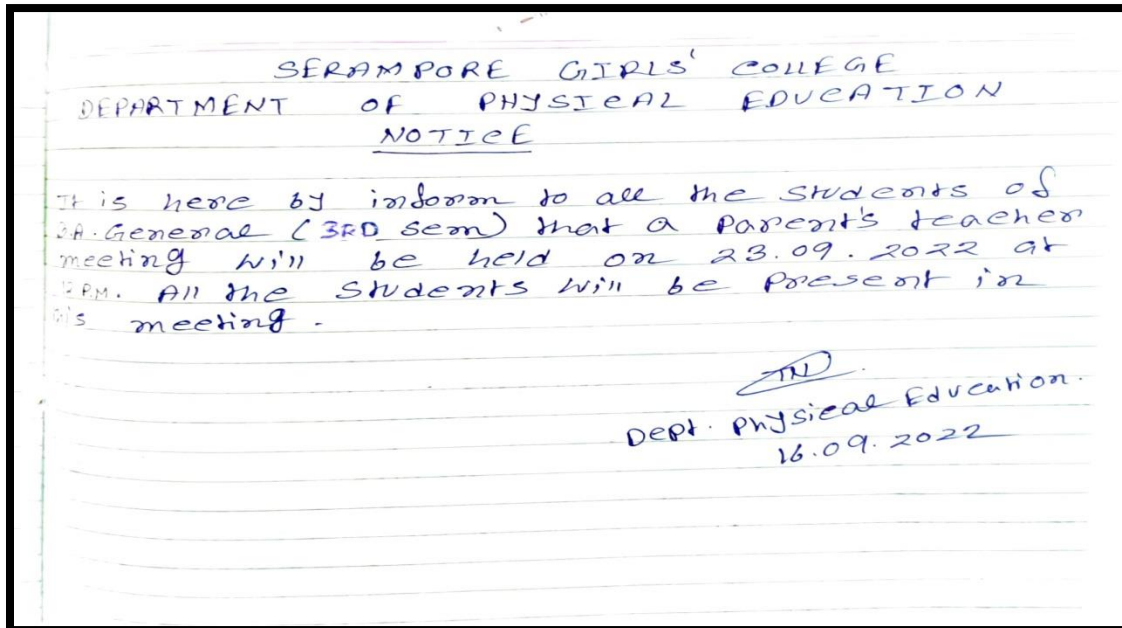 SERAMPORE GIRLS' COLLEGE
DEPARTMENT OF PHYSICAL EDUCATION
NOTICE
It is here by inform to all the students of
B.A. General (3RD Sem) that a Parent's teacher
meeting will be held on 23.09.2022 at
12 P.M. All the students will be present in
this meeting.
TN
Dept. Physical Education.
16.09.2022